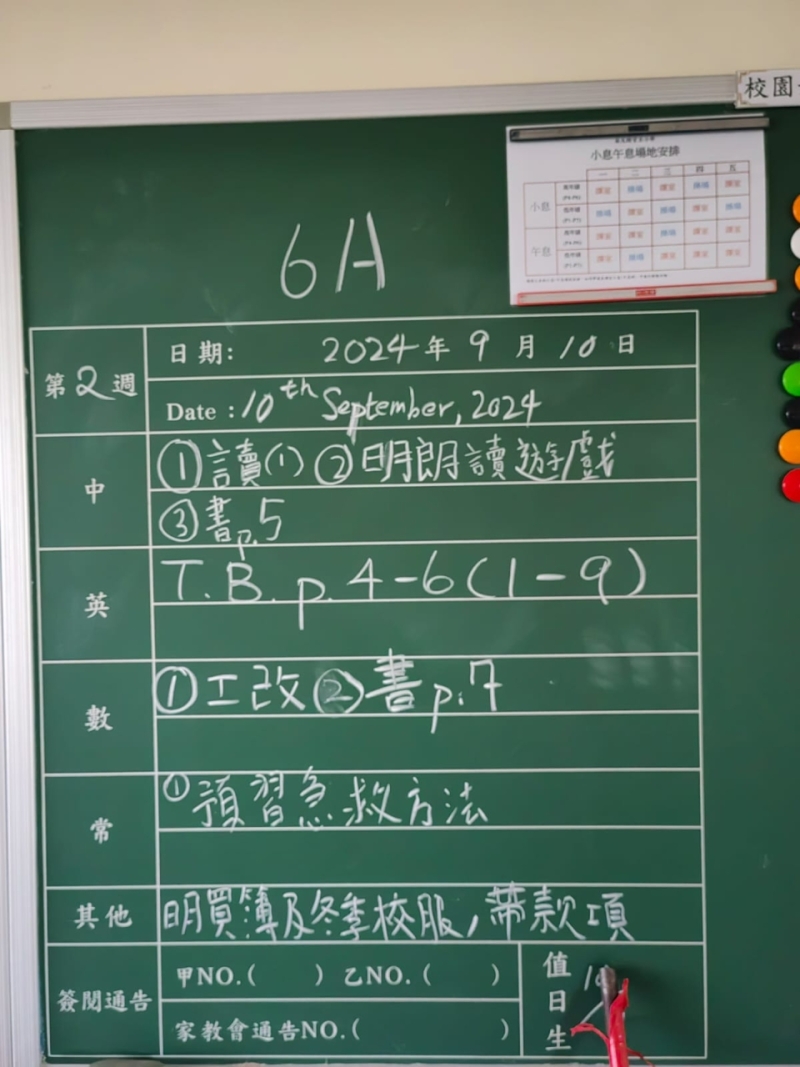 校園
小息午息場地安排
一 二 三 四 五
小息
午息
6A
第2週
日期: 2024年9月10日
Date : 10th September, 2024
中
①讀(1) ②明朗讀遊戲
③書p.5
英
T.B. p. 4-6(1-9)
數
①工改②書p.7
常
①預習急救方法
其他
明買簿及冬季校服,帶款項
簽閱通告
甲NO.( ) 乙NO.( )
家教會通告NO.( )
值日生